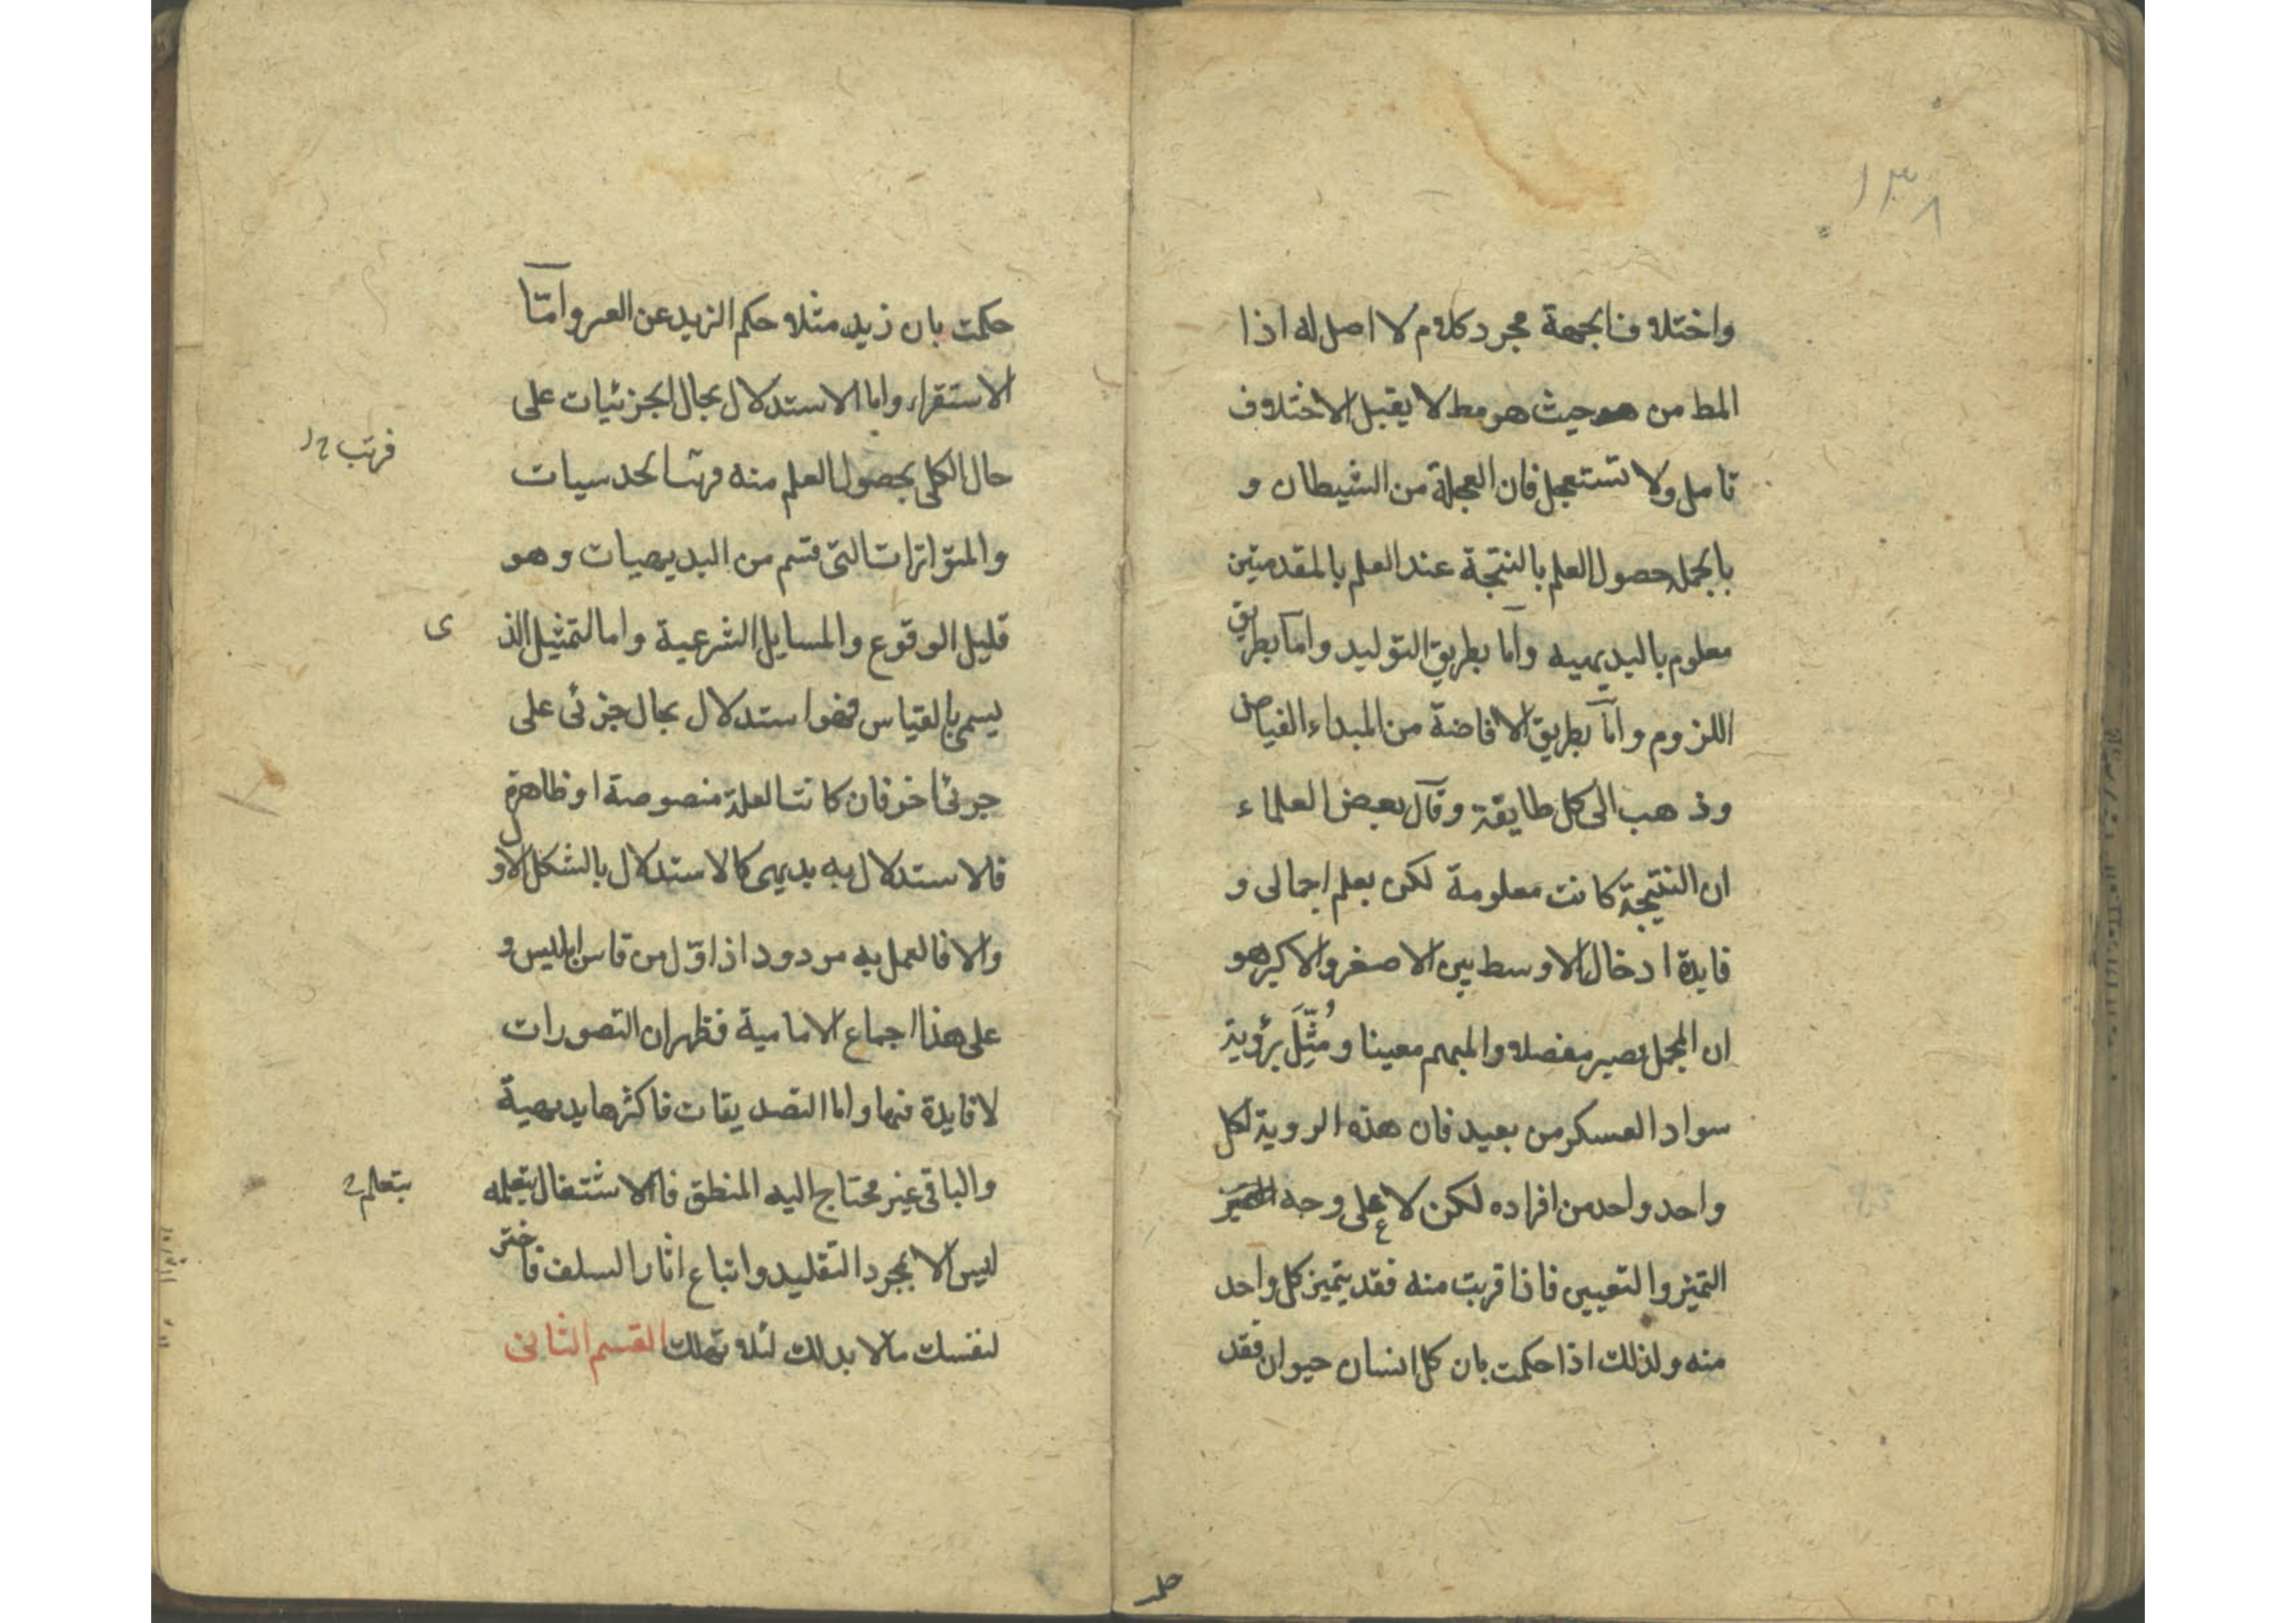 ١٣٨
واختلاف الجهة مجرد كلام لا اصل له اذا
المط من حيث هو مط لا يقبل الاختلاف
تامل ولا تستعجل فان العجلة من الشيطان و
بالجملة حصول العلم بالنتجة عند العلم بالمقدمتين
معلوم بالبديهيه واما بطريق التوليد واما بطريق
اللزوم واما بطريق الافاضة من المبداء الفياض
وذهب الى كل طايفة وقال بعض العلماء
ان النتيجة كانت معلومة لكن بعلم اجمالى و
فايدة ادخال الاوسط بين الاصغر والاكبر هو
ان المجمل يصير مفصلا والمبهم معينا ومُثِّلَ برؤية
سواد العسكر من بعيد فان هذه الروية لكل
واحد واحد من افراده لكن لا على وجه
التميز والتعيين فاذا قربت منه فقد يتميز كل واحد
منه ولذلك اذا حكمت بان كل انسان حيوان فقد
حكمت بان زيد مثلا حكم الزيد عن العمر واما
الاستقراء واما الاستدلال بحال الجزئيات على
حال الكلى بحصول العلم منه فرتبا لحدسيات
فرتب
والمتواترات التى قسم من البديهيات وهو
قليل الوقوع والمسايل الشرعية واما التمثيل الذ
ى
يسمى بالقياس فهو استدلال بحال جزئى على
جزئى اخر فان كانت العلة منصوصة او ظاهرة
فالاستدلال به بديهى كالاستدلال بالشكل الاول
والا فالعمل به مردود اذ اول من قاس ابليس و
على هذا اجماع الامامية فظهر ان التصورات
لا فايدة فيها واما التصديقات فاكثرها بديهية
والباقى غير محتاج اليه المنطق فالاشتغال بتعلمه
بتعلم
ليس الا بمجرد التقليد واتباع اثار السلف فاختر
لنفسك ما لا بد لك لئلا تهلك القسم الثانى